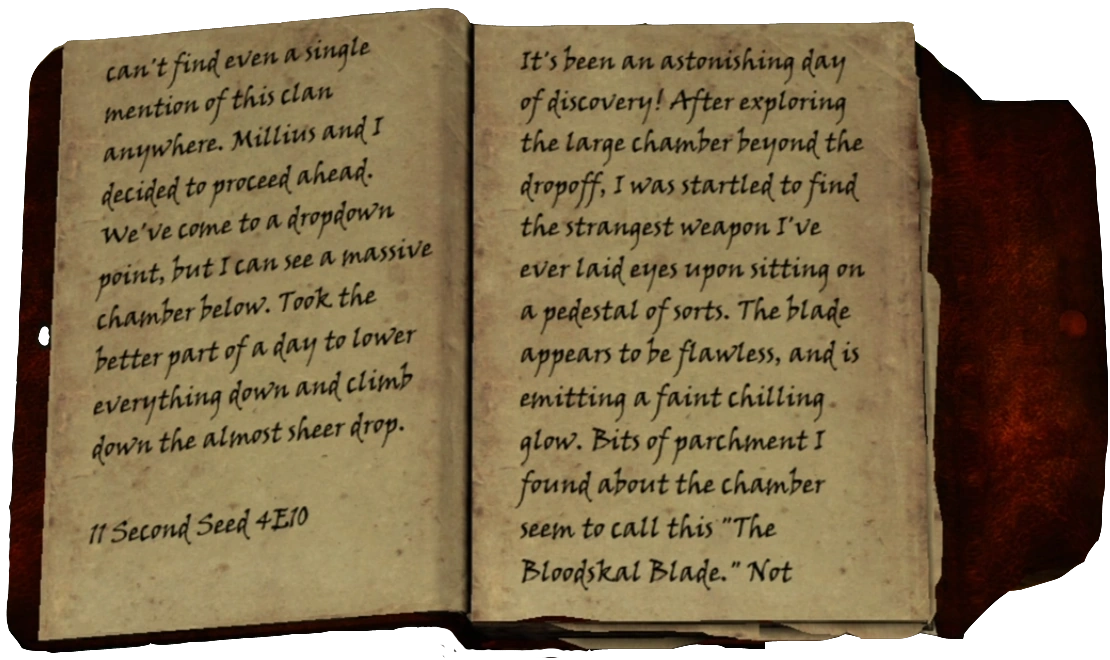 can't find even a single
mention of this clan
anywhere. Millius and I
decided to proceed ahead.
We've come to a dropdown
point, but I can see a massive
chamber below. Took the
better part of a day to lower
everything down and climb
down the almost sheer drop.
11 Second Seed 4E10
It's been an astonishing day
of discovery! After exploring
the large chamber beyond the
dropoff, I was startled to find
the strangest weapon I've
ever laid eyes upon sitting on
a pedestal of sorts. The blade
appears to be flawless, and is
emitting a faint chilling
glow. Bits of parchment I
found about the chamber
seem to call this "The
Bloodskal Blade." Not